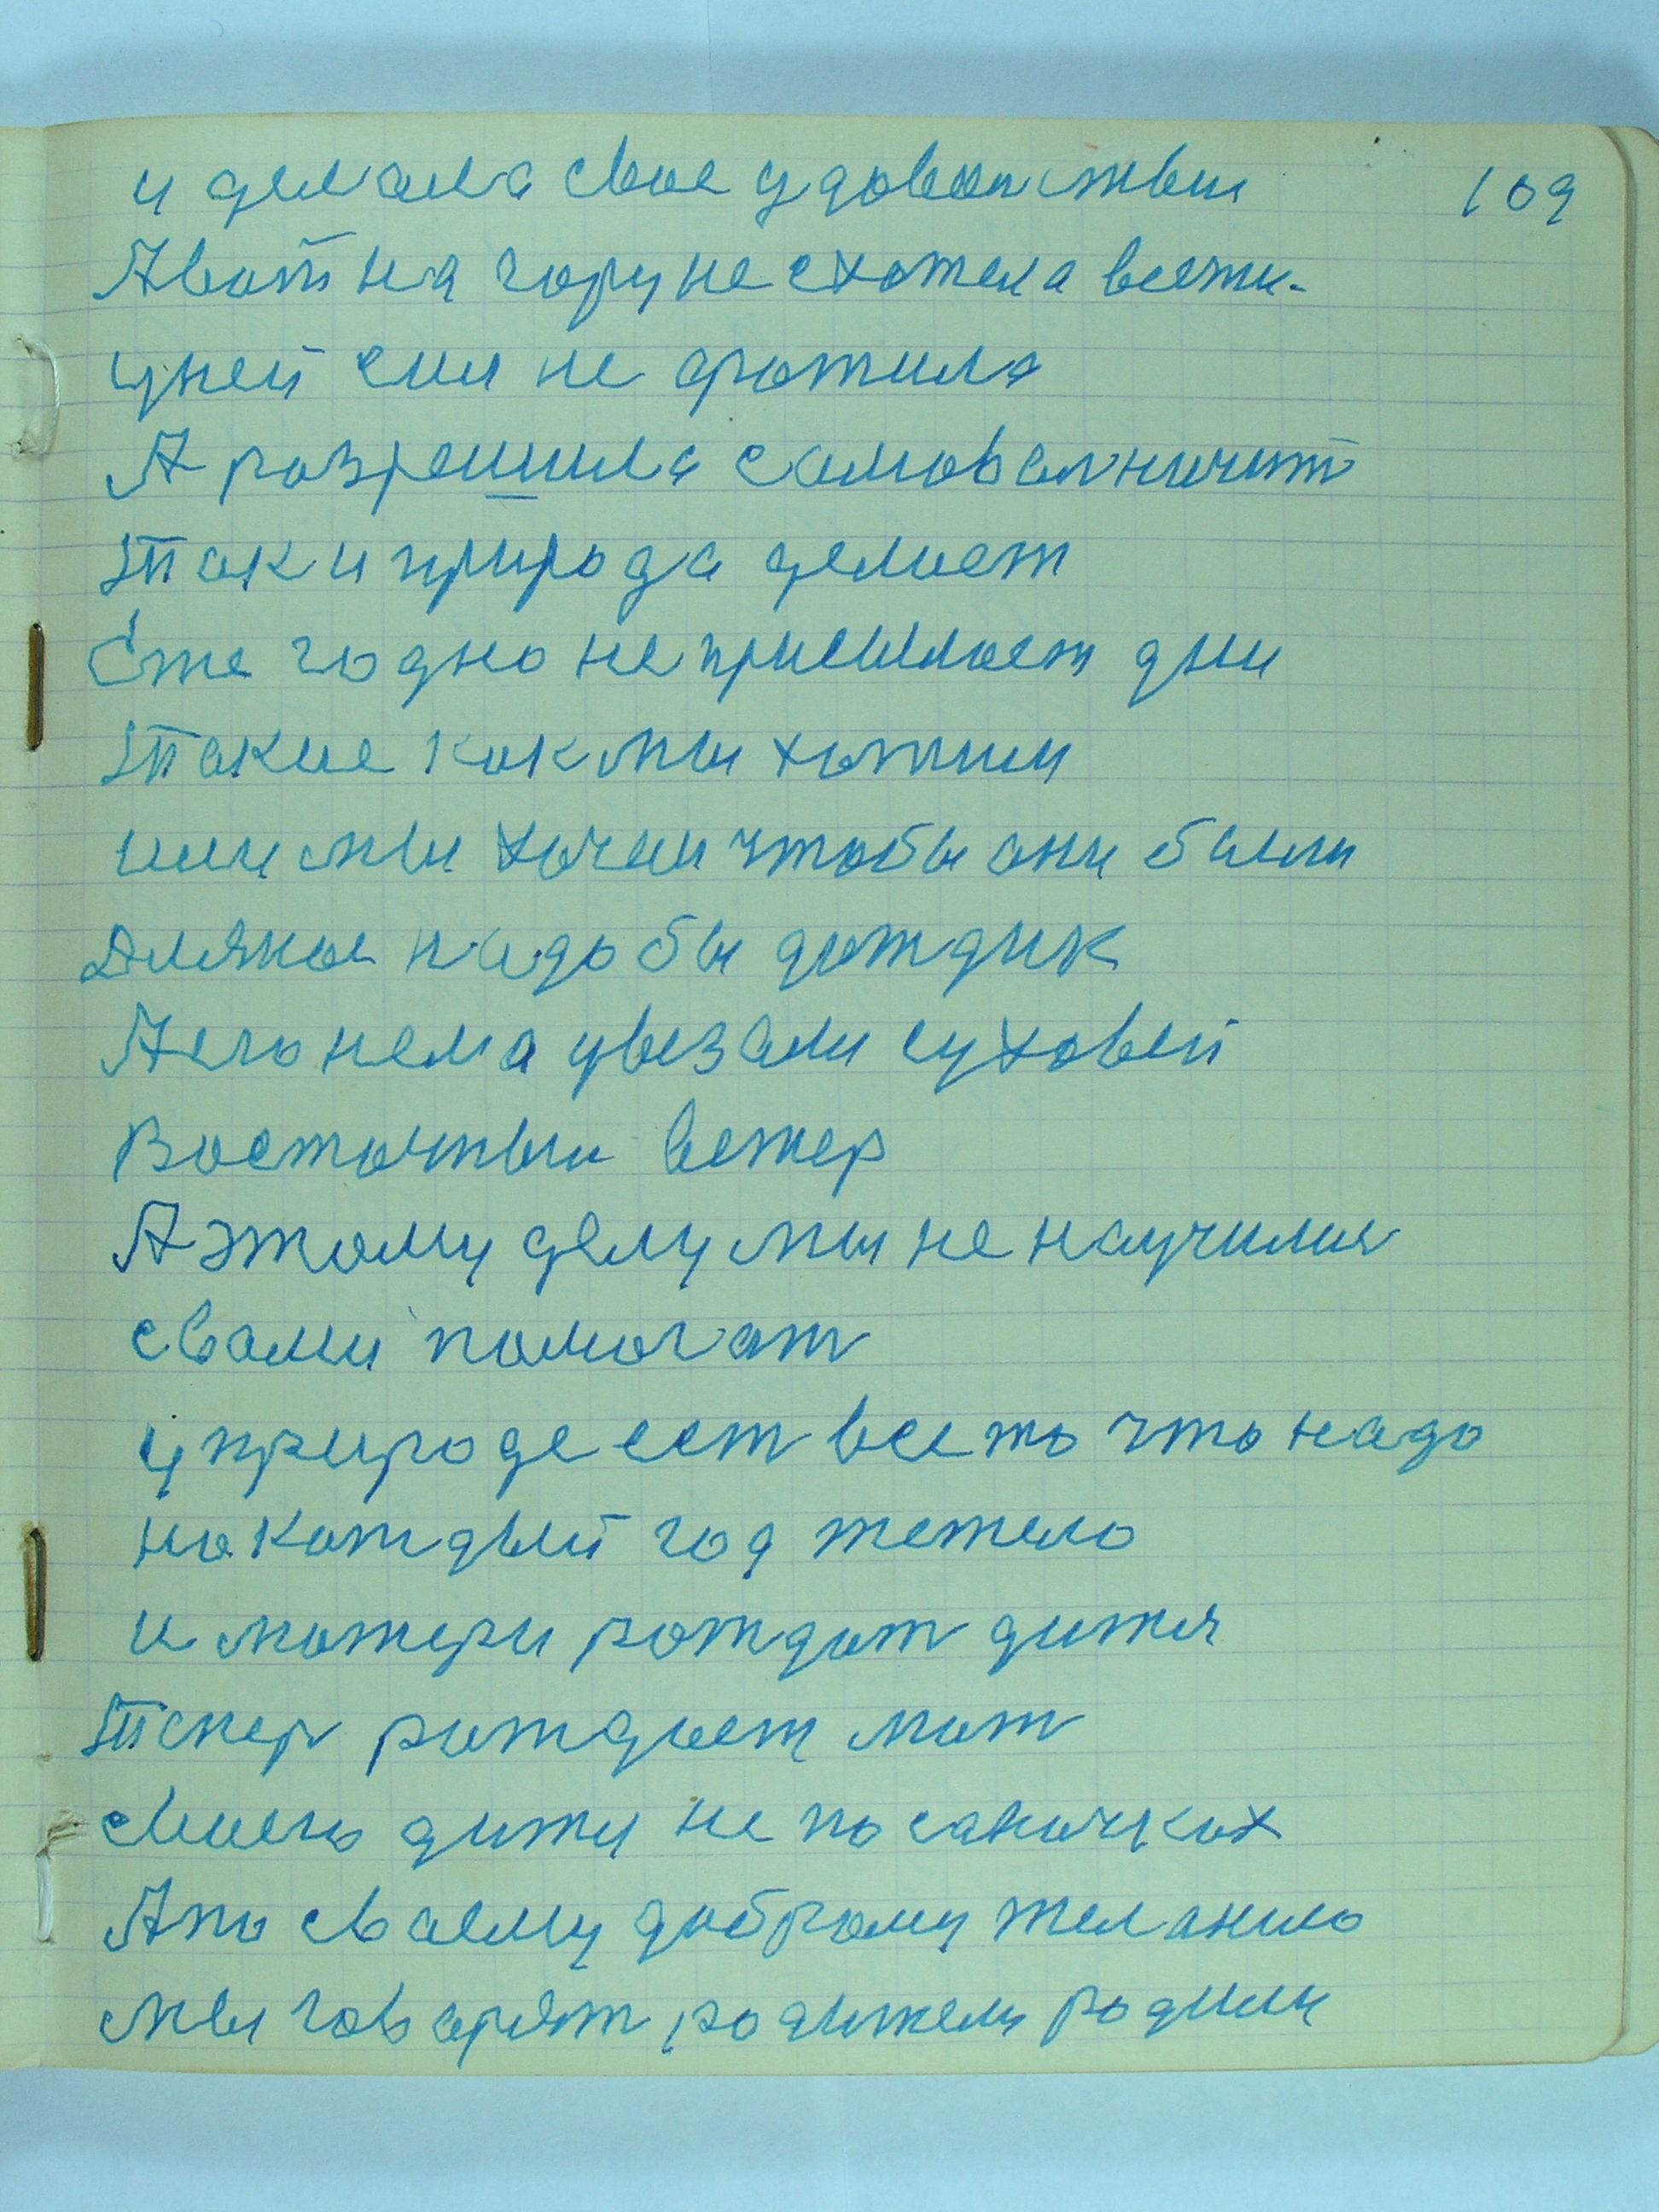 и делала свое удовольствии 109
А вот на гору не схотела везти.
у ней сил не фатила
А розрешила самоволничит
Так и природа делает
Сте годно не присилает дни
Такие как мы хотим
или мы хочем чтобы они были
Для нас надо бы дождик
А его нема увезали суховей
Восточныи ветер
А этому делу мы не научилис
с вами помогат
у природе ест все то что надо
но каждый год тежело
и матери рождат дитя
Тепер рождает мат
своего дитя не по саночках
А по своему доброму желанию
мы говарят родители родили